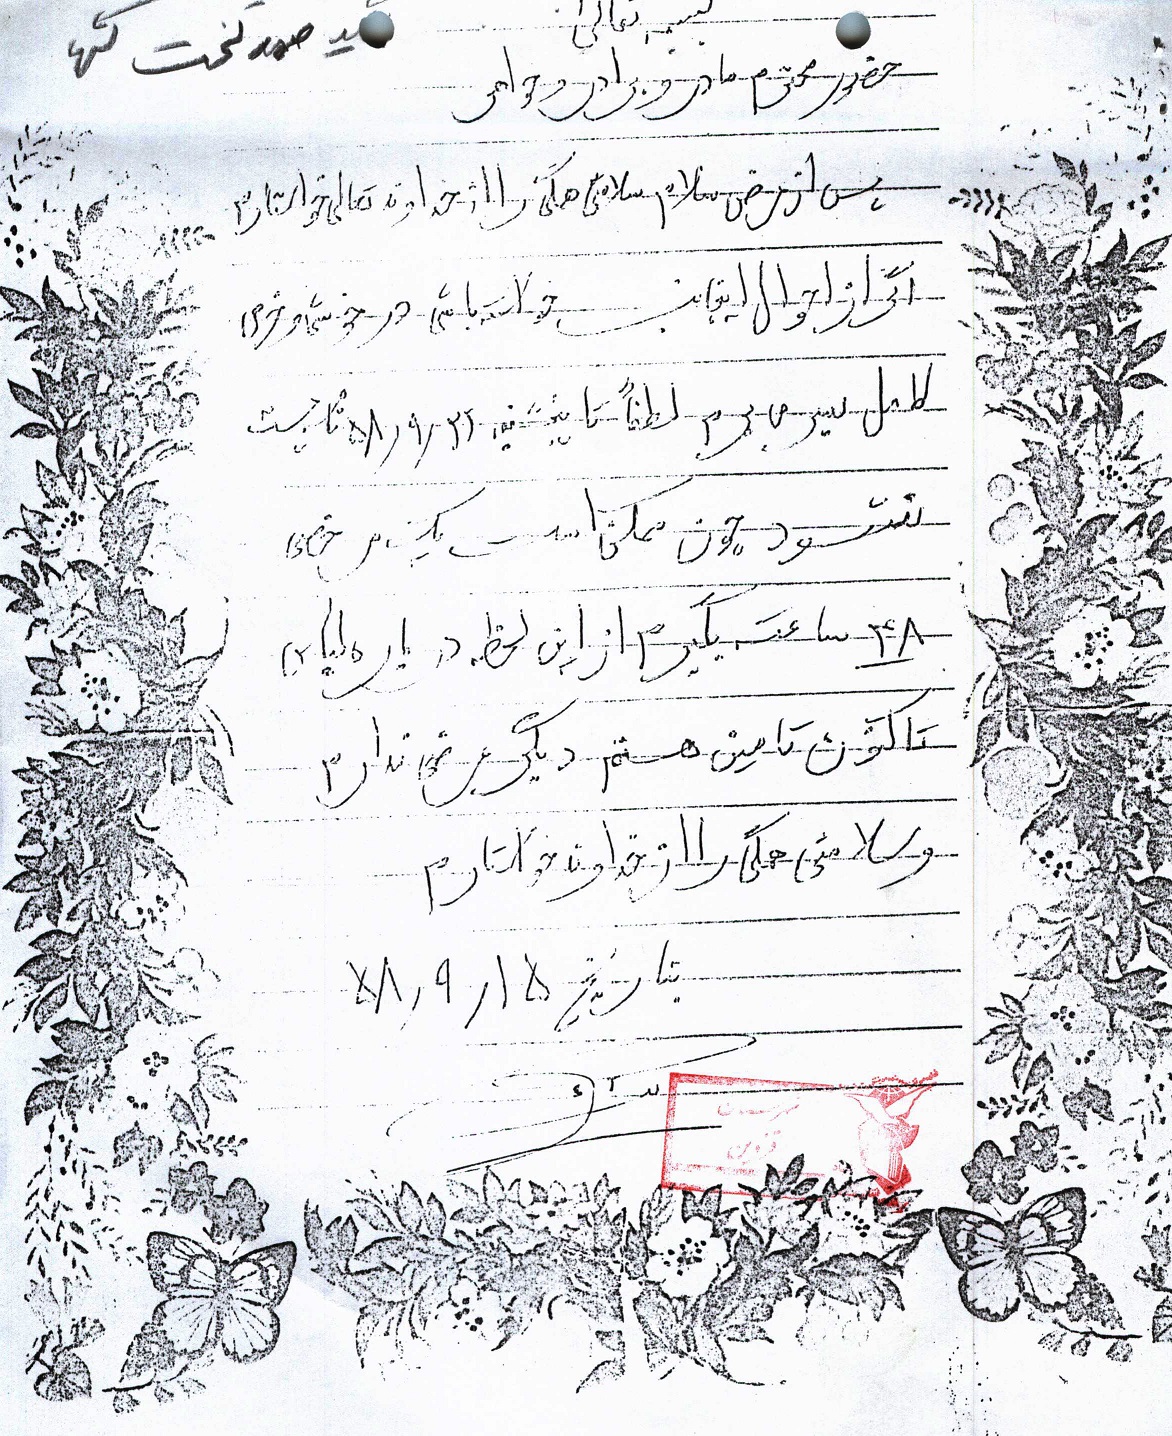 صمد تخت کشها
بسمه تعالی
حضور محترم مادر و برادر و خواهر
پس از عرض سلام سلامتی همگی را از خداوند تعالی خواستارم
اگر از احوال اینجانب خواسته باشی در خوشی و خرمی
کامل بسر می برم لطفاً تا پنجشنبه ۵۸٫۹٫۲۲
نشود چون ممکن است یک مرخصی
۴۸ ساعته بگیرم از این لحظه در باره لباس
تاکنون تامین هستم دیگر عرضی ندارم
و سلامتی همگی را از خداوند خواستارم
بتاریخ ۵۸٫۹٫۱۵